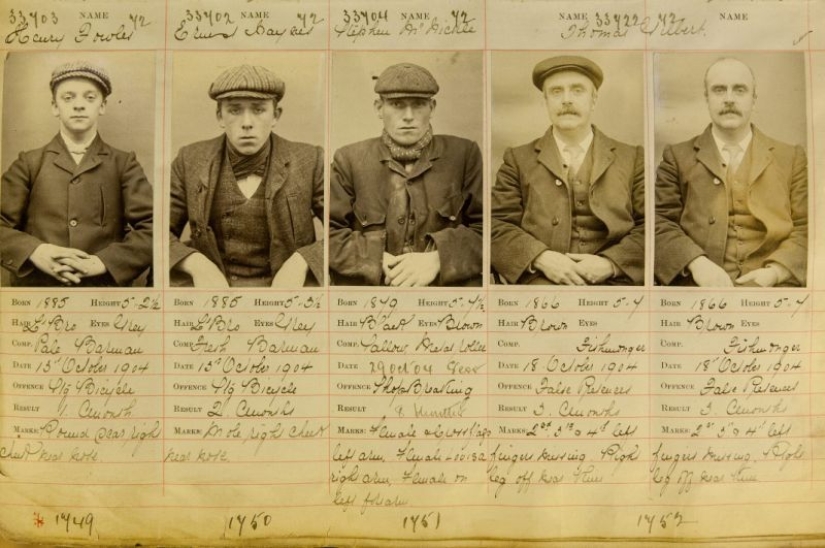 33703 NAME 72
Henry Fowler
33702 NAME 72
33704 NAME 72
Stephen
NAME 33722 72 NAME
Thomas Gilbert.
BORN 1885 HEIGHT 5-2½
HAIR L' Bro EYES Grey
COMP. Pale Barman
DATE 15th October 1904
OFFENCE Stg Bicycle
RESULT 1. Cmonth
MARKS: Round scar right
cheek near nose.
1749
BORN 1885 HEIGHT 5-3½
HAIR L' Bro EYES Grey
COMP. Fresh Barman
DATE 15th October 1904
OFFENCE Stg Bicycle
RESULT 2. Cmonths
MARKS: Mole right cheek
near nose.
1750
BORN HEIGHT 5-4½
HAIR Black EYES Brown
COMP. Sallow
DATE 29 Oct 04
OFFENCE Shop Breaking
RESULT
MARKS: Female
left arm. Female
right arm. Female on
left forearm
1751
BORN 1866 HEIGHT 5-4
HAIR Brown EYES
COMP. Fishmonger
DATE 18 October 1904
OFFENCE False Pretences
RESULT 3. Cmonths
MARKS: 2nd 3rd & 4th left
fingers missing. Right
leg off near knee
BORN 1866 HEIGHT 5-4
HAIR Brown EYES
COMP. Fishmonger
DATE 18th October 1904
OFFENCE False Pretences
RESULT 3. Cmonths
MARKS: 2nd 3rd & 4th left
fingers missing. Right
leg off near knee
1752